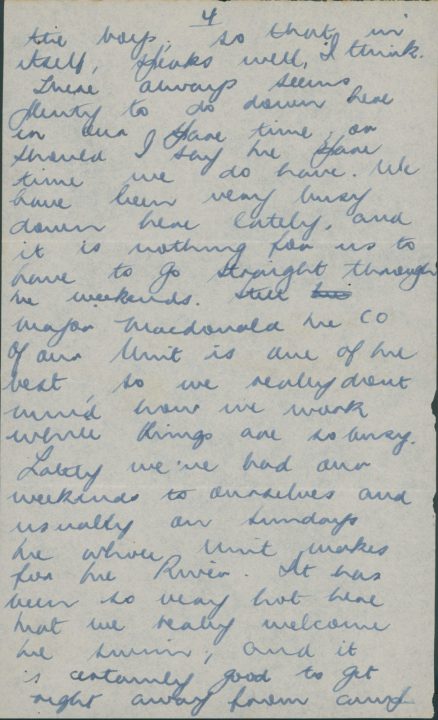 4
the boys, so that, in
itself, speaks well, I think.
There always seems
plenty to do down here
in our spare time, or
should I say the spare
time we do have. We
have been very busy
down here lately, and
it is nothing for us to
have to go straight through
the weekends. Still
Major Macdonald the CO
of our Unit is one of the
best, so we really dont
mind how we work
while things are so busy.
Lately we've had our
weekends to ourselves and
usually on Sundays
the whole Unit makes
for the River. It has
been so very hot here
that we really welcome
the swim, and it
is certainly good to get
right away from camp